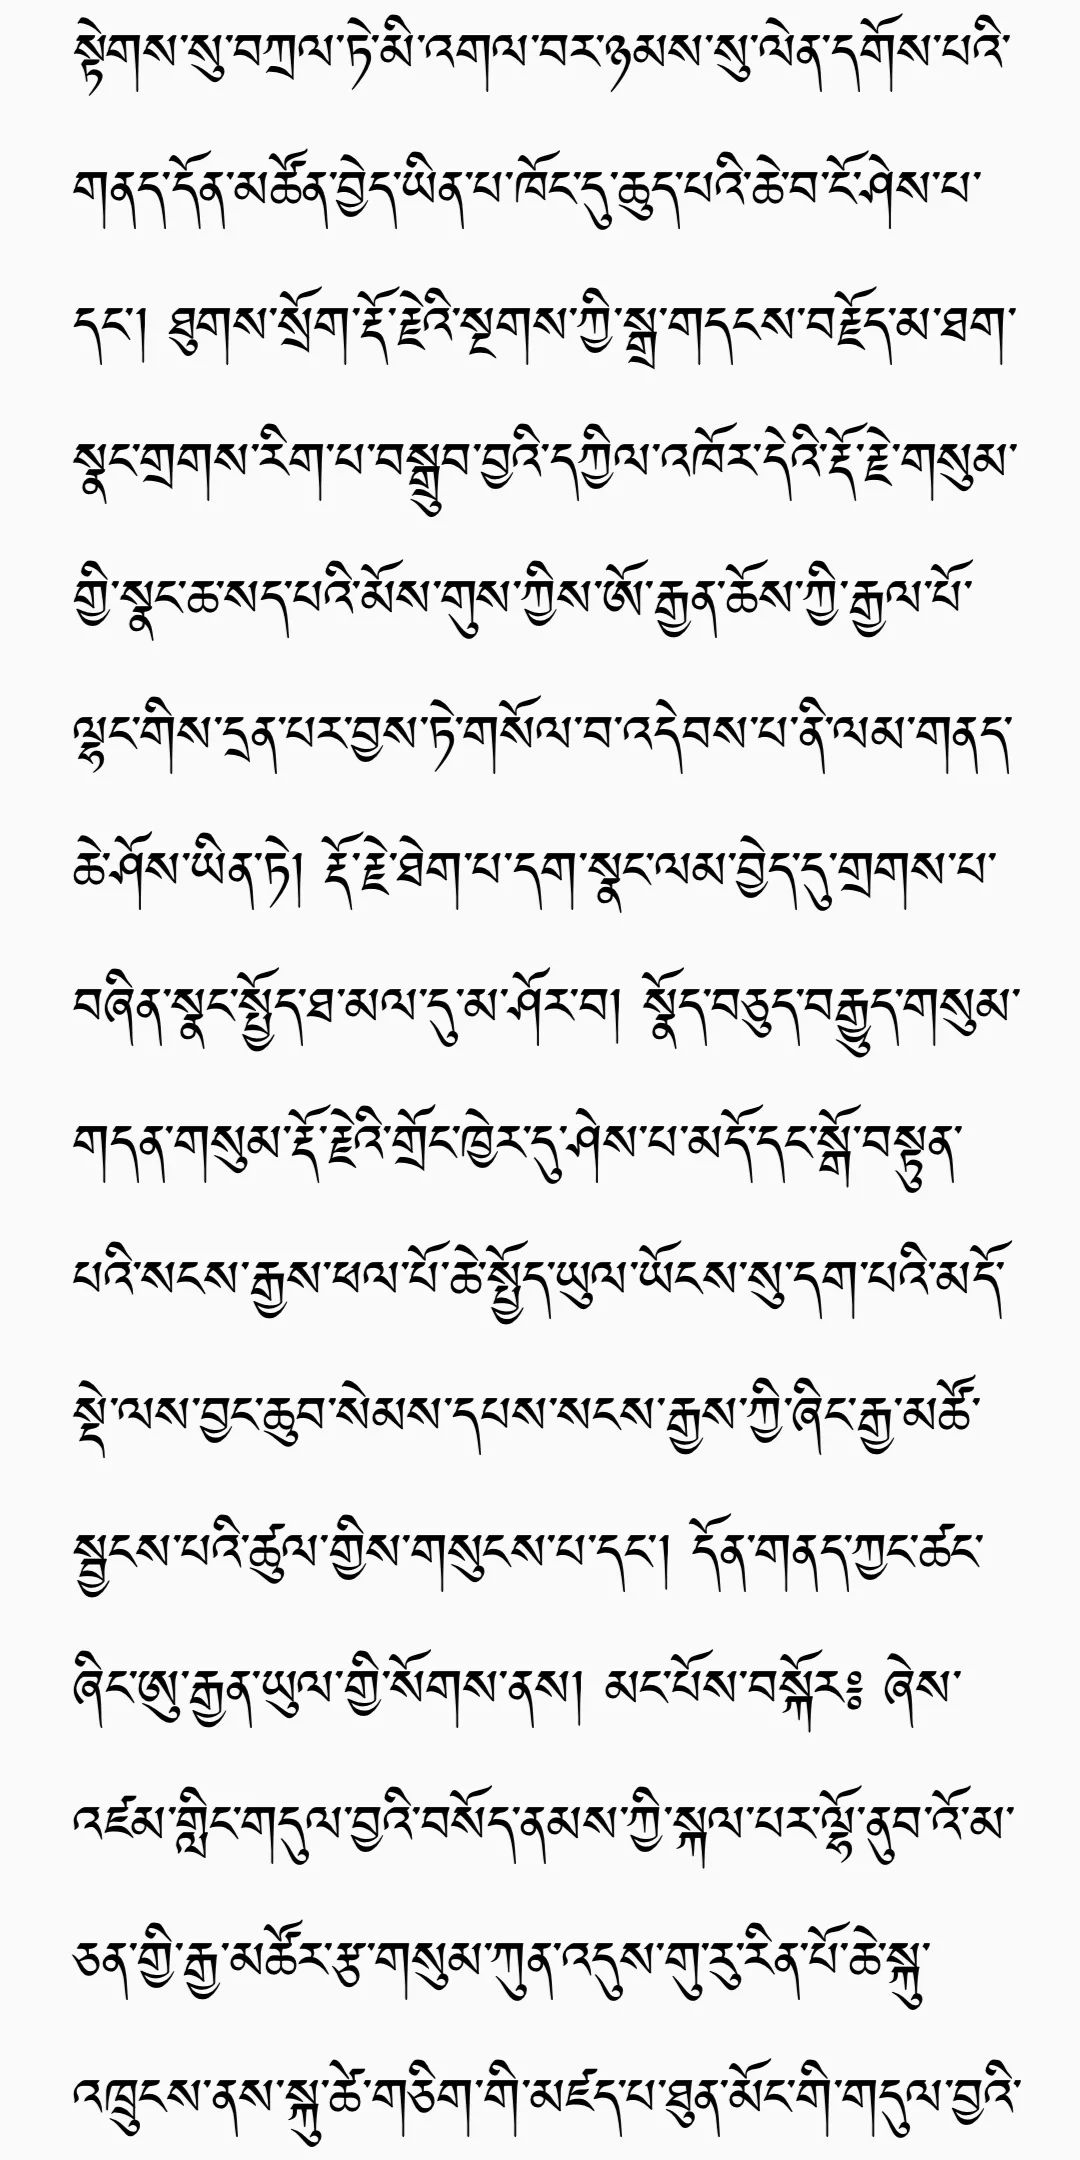 སྟེགས་སུ་བཀྲལ་ཏེ་མི་འགལ་བར་ཉམས་སུ་ལེན་དགོས་པའི་
གནད་དོན་མཚོན་བྱེད་ཡིན་པ་ཁོང་དུ་ཆུད་པའི་ཆེ་བ་ངོ་ཤེས་པ་
དང་། ཐུགས་སྲོག་རྡོ་རྗེའི་སྔགས་ཀྱི་སྒྲ་གདངས་བརྗོད་མ་ཐག་
སྣང་གྲགས་རིག་པ་བསྒྲུབ་བྱའི་དཀྱིལ་འཁོར་དེའི་རྡོ་རྗེ་གསུམ་
གྱི་སྣང་ཆ་སད་པའི་མོས་གུས་ཀྱིས་ཨོ་རྒྱན་ཆོས་ཀྱི་རྒྱལ་པོ་
ལྷང་གིས་དྲན་པར་བྱས་ཏེ་གསོལ་བ་འདེབས་པ་ནི་ལམ་གནད་
ཆེ་ཤོས་ཡིན་ཏེ། རྡོ་རྗེ་ཐེག་པ་དག་སྣང་ལམ་བྱེད་དུ་གྲགས་པ་
བཞིན་སྣང་སྤྱོད་ཐ་མལ་དུ་མ་ཤོར་བ། སྣོད་བཅུད་བརྒྱུད་གསུམ་
གདན་གསུམ་རྡོ་རྗེའི་གྲོང་ཁྱེར་དུ་ཤེས་པ་མདོ་དང་སྒོ་བསྟུན་
པའི་སངས་རྒྱས་ཕལ་པོ་ཆེ་སྤྱོད་ཡུལ་ཡོངས་སུ་དག་པའི་མདོ་
སྡེ་ལས་བྱང་ཆུབ་སེམས་དཔས་སངས་རྒྱས་ཀྱི་ཞིང་རྒྱ་མཚོ་
སྦྱངས་པའི་ཚུལ་གྱིས་གསུངས་པ་དང་། དོན་གནད་ཀྱང་ཚང་
ཞིང་ཨུ་རྒྱན་ཡུལ་གྱི་སོགས་ནས། མང་པོས་བསྐོར༔ ཞེས་
འཛམ་གླིང་གདུལ་བྱའི་བསོད་ནམས་ཀྱི་སྐལ་པར་ལྷོ་ནུབ་འོ་མ་
ཅན་གྱི་རྒྱ་མཚོར་རྩ་གསུམ་ཀུན་འདུས་གུ་རུ་རིན་པོ་ཆེ་སྐུ་
འཁྲུངས་ནས་སྐུ་ཚེ་གཅིག་གི་མཛད་པ་ཐུན་མོང་གི་གདུལ་བྱའི་